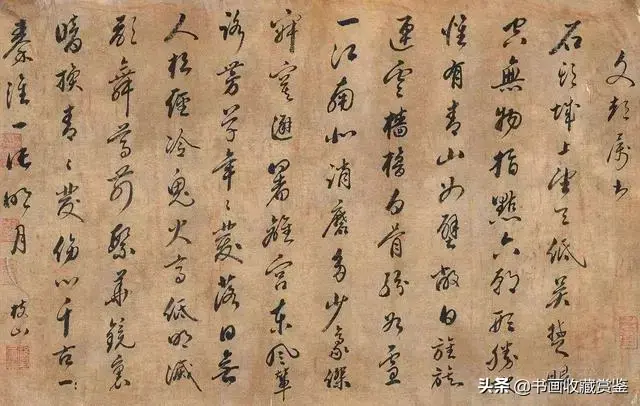 石頭城上望天低吳楚眼
空無物指點六朝形勝
惟有青山如壁蔽日旌旗
連雲檣櫓白骨紛如雪
一江南北消磨多少豪傑
寂寞避暑離宮東風輦
路芳草年々發落日無
人松徑冷鬼火高低明滅
歌舞尊前繁華鏡裏
暗換青々髮傷心千古一
秦淮一片明月
枝山
头条 @书画收藏赏鉴